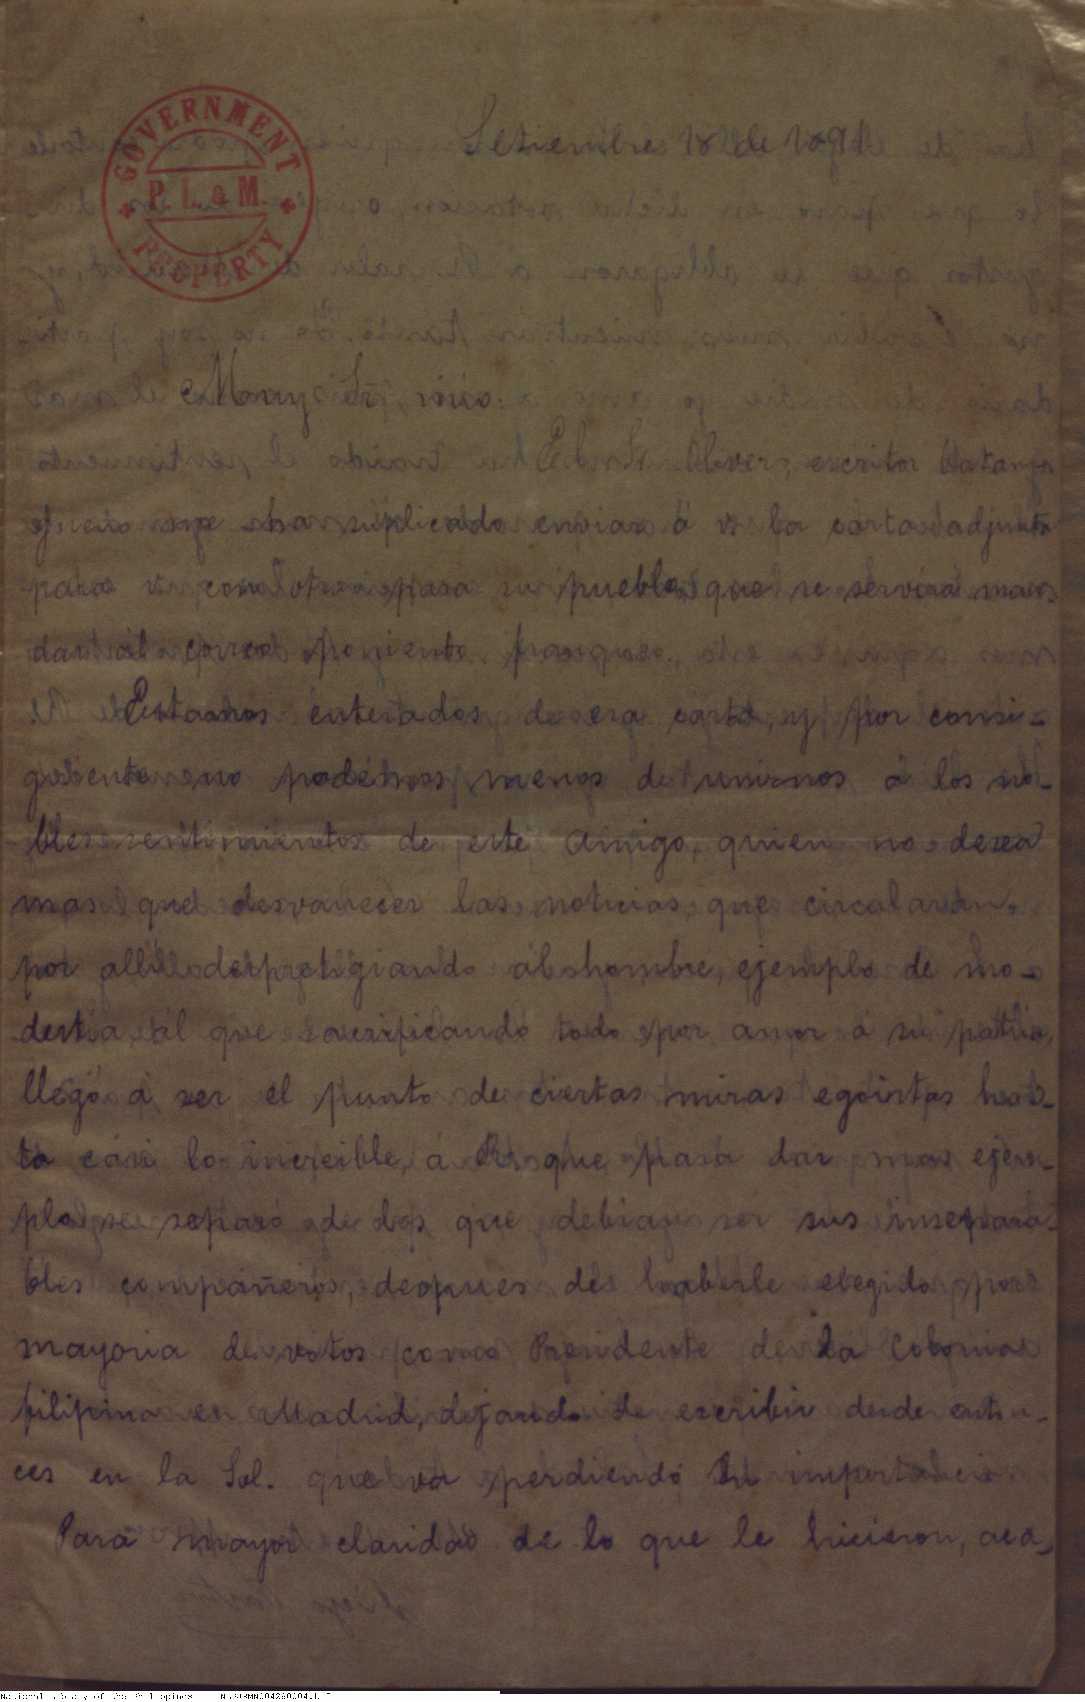 GOVERNMENT
P. L. & M.
PROPERTY
Setiembre 18 de 1891
Muy Sr. mio:
El Sr. Oliver, escritor Catalan,
ha suplicado enviar á v. la carta adjunta
para v. con otra para su pueblo, que se servirá man-
dar al correo
Estamos enterados de esa carta, y por consi-
guiente no podémos menos de unirnos á los no-
bles sentimientos de este amigo, quien no desea
mas que desvanecer las noticias que circularán
por alli desprestigiando al hombre, ejemplo de mo-
destia, al que sacrificando todo por amor á su patria,
llegó á ser el punto de ciertas miras egoistas has-
ta cási lo increible, á R. que para dar mas ejem-
plo se separó de los que debian ser sus insepara-
bles compañeros, despues de haberle elegido por
mayoria de votos como Presidente de la Colonia
filipina en Madrid, dejando de escribir desde enton-
ces en la Sol. que va perdiendo su importancia
Para mayor claridad de lo que le hicieron, aca-
National Library of the Philippines